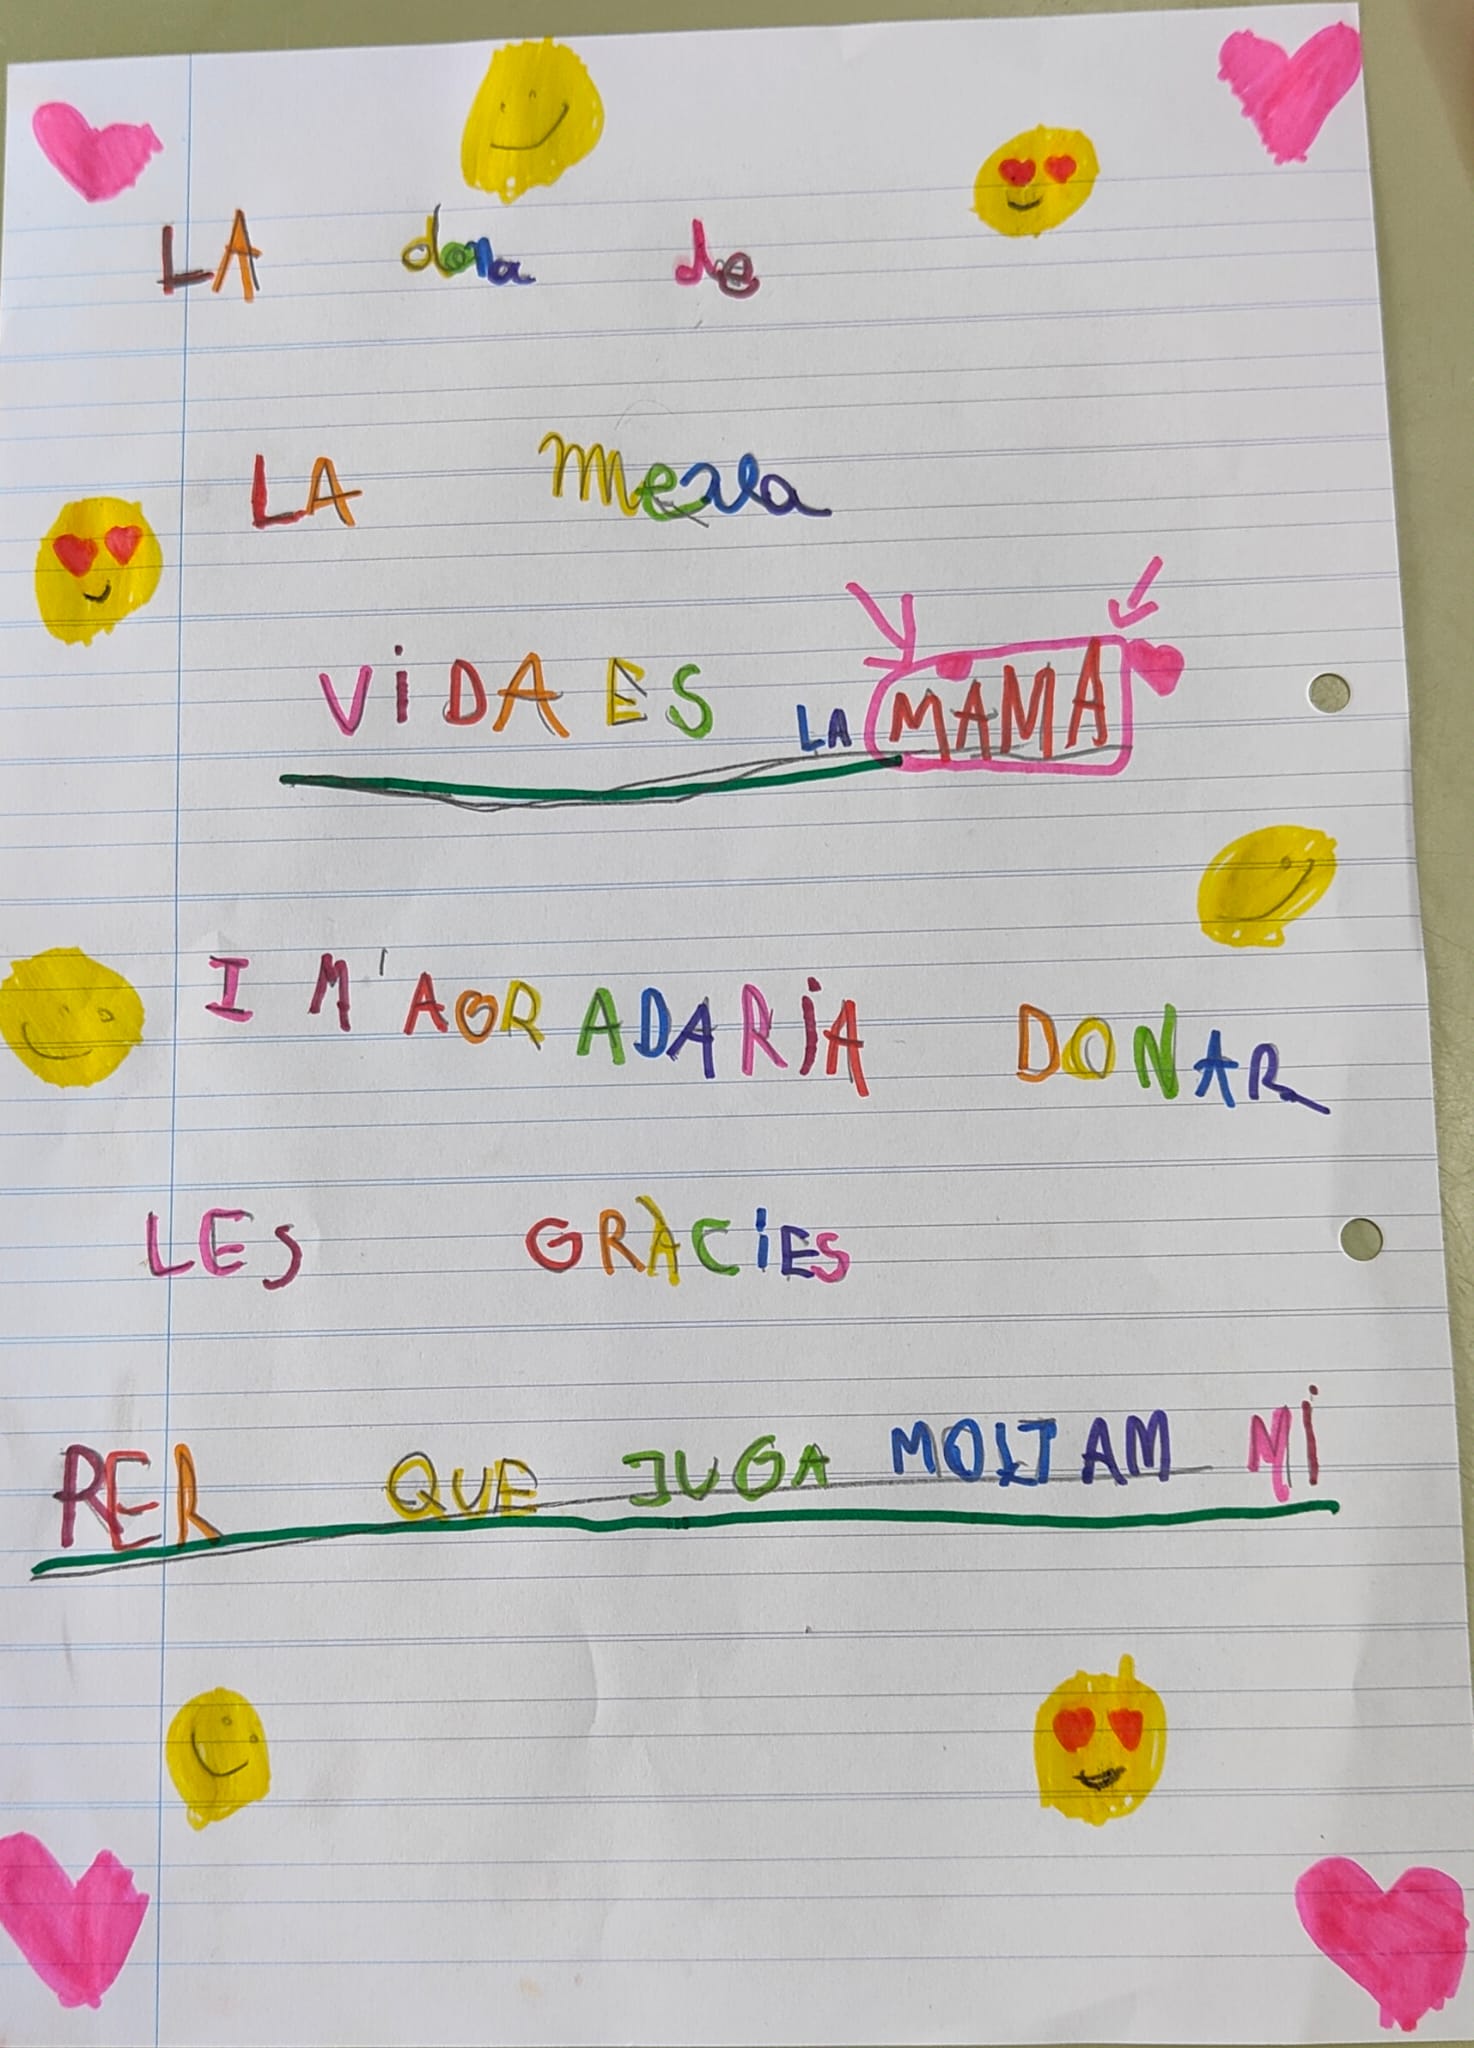 LA dona de
LA meva
ViDA ES LA MAMA
I M'AGRADARiA DONAR
LES GRÀCiES
PER QUE JUGA MOLT AM Mi